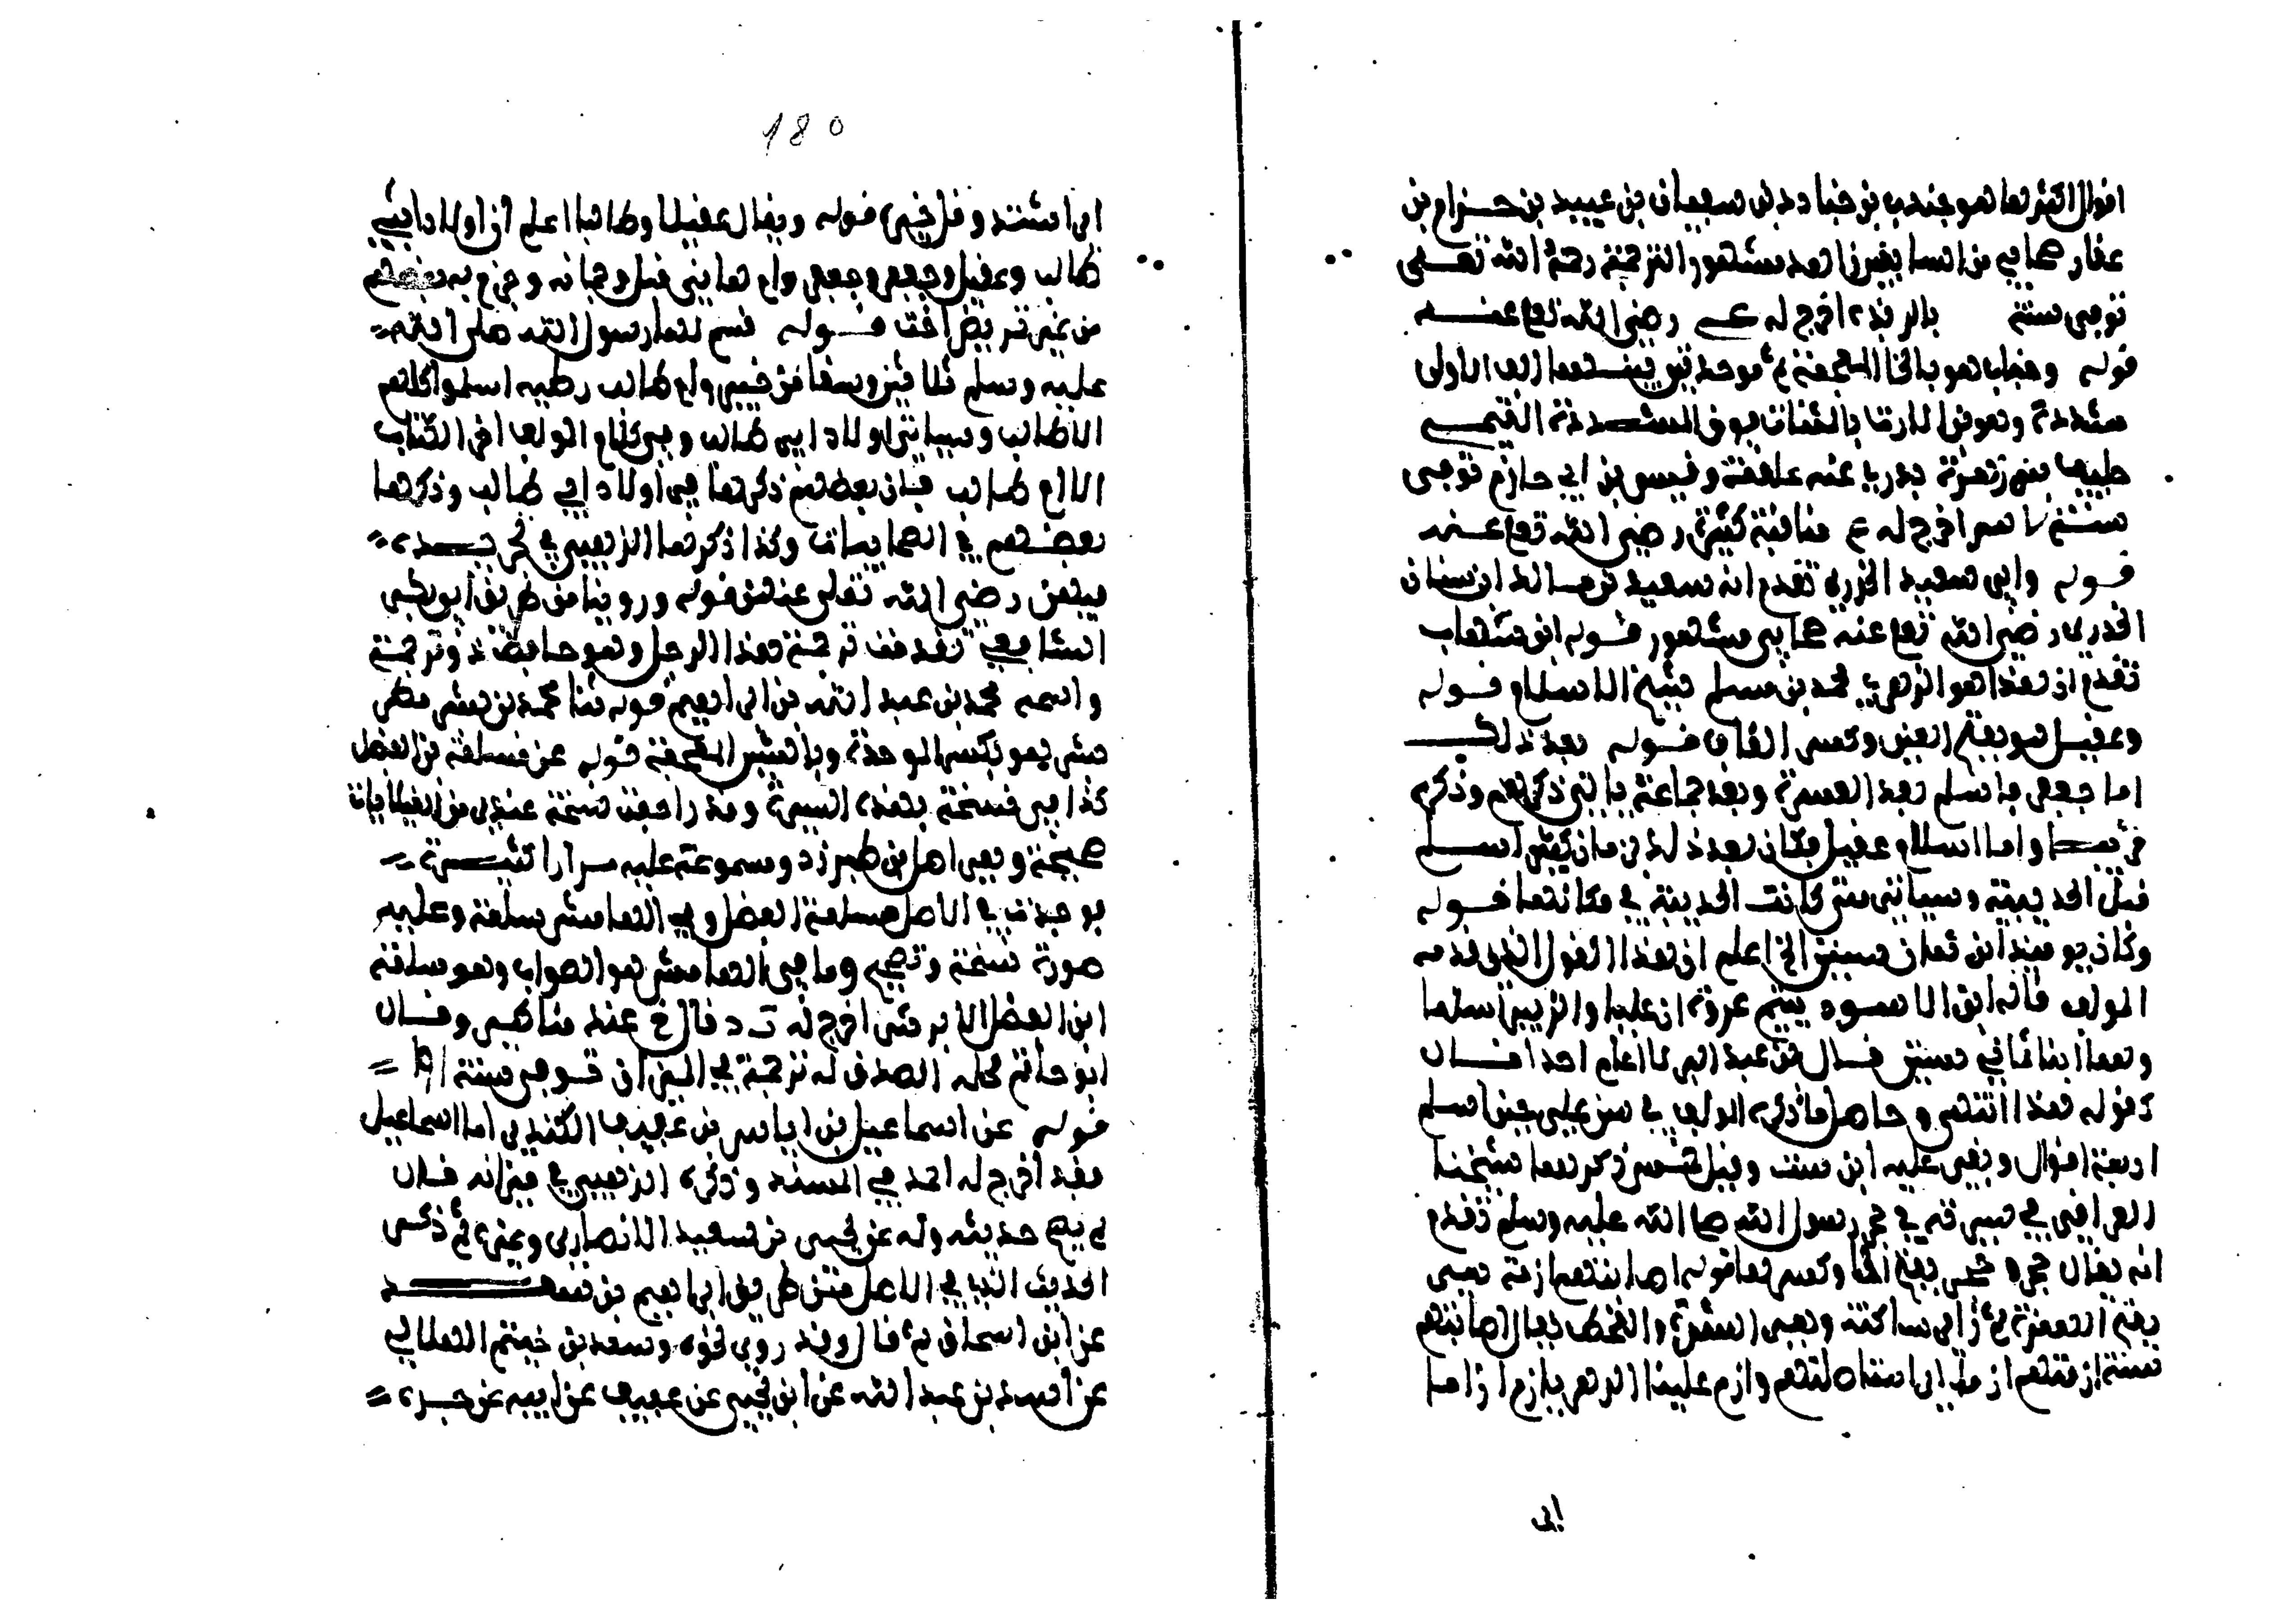 اقوال اكثرها هو جندب بن جنادة بن سفيان بن عبيد بن حرام بن
غفار صحابي من السابقين زاهد مشهور الترجمة رحمة الله تعلى
توفي سنة بالربذة اخرج له ع رضي الله تعلى عنه
قوله وخباب هو بالخا المعجمة ثم موحدتين بينهما الف الاولى
مشددة وهو بن الارت بالمثناة فوق المشددة التميمي
حليف بني زهرة بدري عنه علقمة وقيس بن ابي حازم توفي
سنة اخرج له ع مناقبه كثيرة رضي الله تعلى عنه
قوله وابي سعيد الخدري تقدم انه سعيد بن مالك بن سنان
الخدري رضي الله تعلى عنه صحابي مشهور قوله ابن شهاب
تقدم ان هذا هو الزهري محمد بن مسلم شيخ الاسلام قوله
وعقيل هو بفتح العين وكسر القاف قوله بعد ذلك
اما جعفر فاسلم بعد العشرة وبعد جماعة ياتي ذكرهم وذكره
قريبا واما اسلام عقيل فكان بعد ذلك بزمان كثير اسلم
قبل الحديبية وسياتي متى كانت الحديبية في مكانها قوله
وكان يومئذ ابن ثمان سنين الخ اعلم ان هذا القول الذي قدمه
المولف قاله ابو الاسود يتيم عروة ان عليا والزبير اسلما
وهما ابنا ثماني سنين قال بن عبد البر لا اعلم احدا قال
كقوله هذا انتهى وحاصل ما ذكره المولف في سن علي حين اسلم
اربعة اقوال وبقي عليه ابن ست وقيل خمس ذكرهما شيخنا
العراقي في سيرته في حجر رسول الله صلى الله عليه وسلم تقدم
انه يقال حجر وحجر بفتح الحا وكسرها قوله اصابتهم ازمة هي
بفتح الهمزة ثم زاي ساكنة وهي الشدة والقحط يقال اصابتهم
سنة ازمتهم ازما اي استاصلتهم وازم علينا الدهر يازم ازما
اي
180
اي اشتد وقل خيره قوله ويقال عقيلا وطالبا اعلم ان اولاد ابي
طالب وعقيل وجعفر وجعفر وام هانئ قيل وجمانة وجزم به بعضهم
من غير تمريض اخت قوله قسم لها رسول الله صلى الله
عليه وسلم ثلاثين وسقا من خيبر وام طالب ريطة اسلموا كلهم
الا طالب وسياتي اولاد ابي طالب وفي كلام المولف اخر الكتاب
الا ام طالب فان بعضهم ذكرها في اولاد ابي طالب وذكرها
بعضهم في الصحابيات وكذا ذكرها الذهبي في تجريده
فيهن رضي الله تعلى عنهن قوله وروينا من طريق ابي بكر
الشافعي تقدمت ترجمة هذا الرجل وهو حافظ ذو ترجمة
واسمه محمد بن عبد الله بن ابراهيم قوله ثنا محمد بن بشر مطر
بشر هو بكسر الموحدة وبالشين المعجمة قوله عن مسلمة بن الفضل
كذا في نسخة بهذه السيرة وقد راجعت نسخة عندي من الغيلانيات
صحيحة وهي اصل ابن طبرزد ومسموعة عليه مرارا كثيرة
فوجدت في الاصل مسلمة الفضل وفي الهامش سلمة وعليه
صورة نسخة وتصحيح وما في الهامش هو الصواب وهو سلمة
ابن الفضل الابرش اخرج له ت د قال خ عنده مناكير وقال
ابو حاتم محله الصدق له ترجمة في الميزان توفي سنة 191
قوله عن اسماعيل بن اياس بن عفيف الكندي اما اسماعيل
فقد اخرج له احمد في المسند وذكره الذهبي في ميزانه قال
لم يصح حديثه وله عن يحيى بن سعيد الانصاري وغيره ثم ذكر
الحديث الذي في الاصل من طريق ابراهيم بن سعد
عن ابن اسحاق ثم قال وقد روى نحوه وسعد بن خيثم الهلالي
عن اسد بن عبد الله عن ابن يحيى عن عفيف عن ابيه عن جده